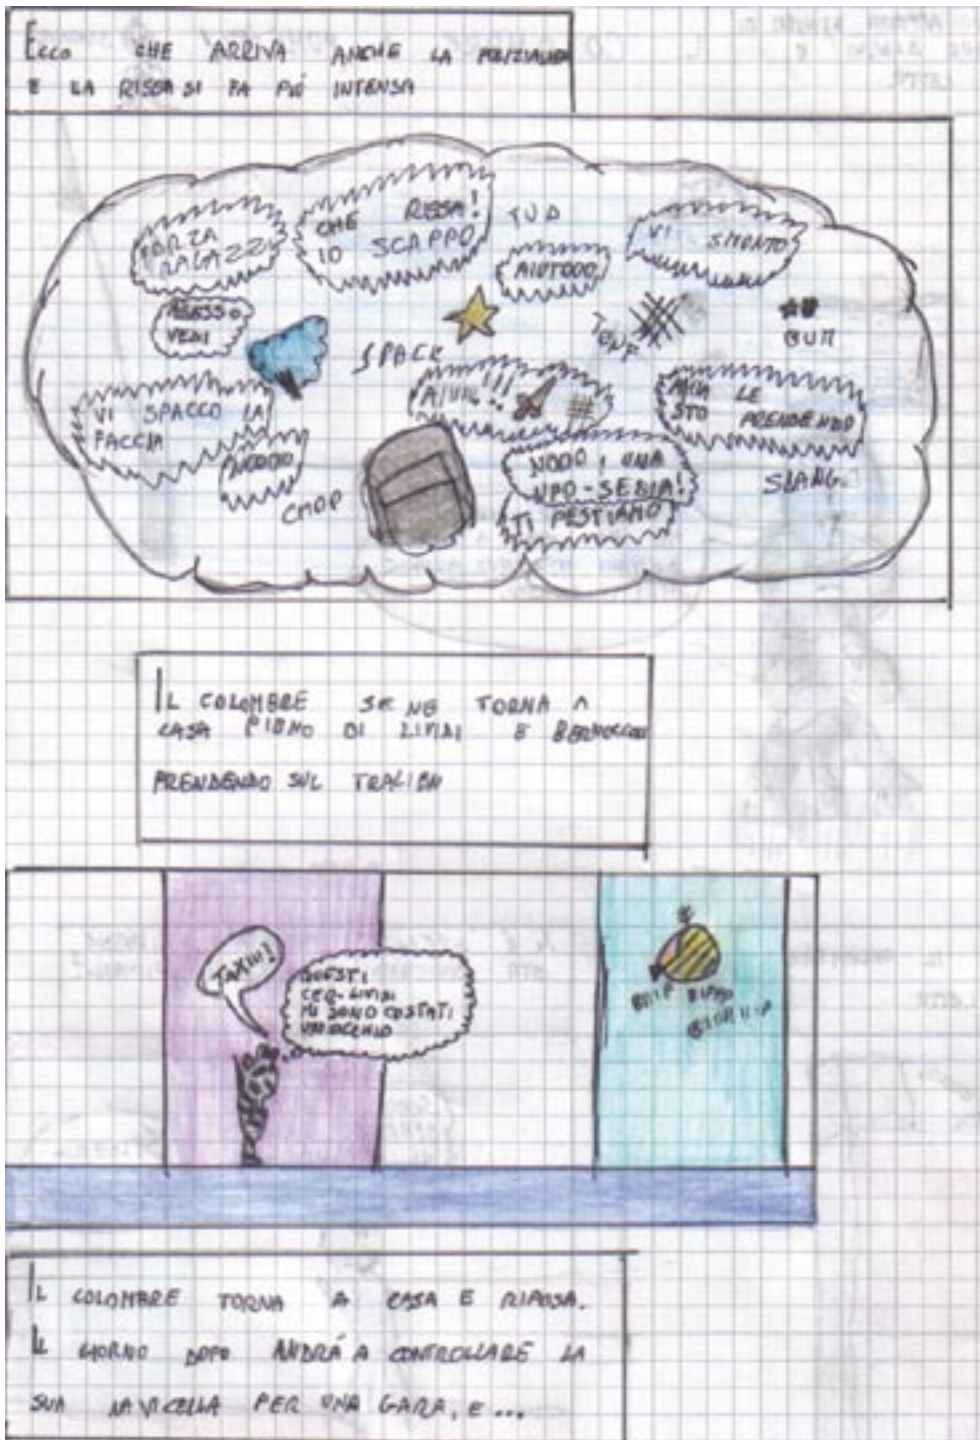 ECCO CHE ARRIVA ANCHE LA
E LA RISSA SI FA PIÚ INTENSA
FORZA
RAGAZZI
CHE RISSA!
IO SCAPPO
TUD
AIUTOOO
VI SMONTO
ADESSO
VEDI
SPACK
TONF
BUM
VI SPACCO LA
FACCIA
MA LE
STO PRENDENDO
NOOOO
CHOP
NOOO, UNA
UFO-SEDIA!
TI PESTIAMO
SLANG.
IL COLOMBRE SE NE TORNA A
CASA PIENO DI LIVIDI E
PRENDENDO SUL
TAXIII!
QUESTI
MI SONO COSTATI
UN OCCHIO
IL COLOMBRE TORNA A CASA E RIPOSA.
IL GIORNO DOPO ANDRÁ A CONTROLLARE LA
SUA NAVICELLA PER UNA GARA, E...